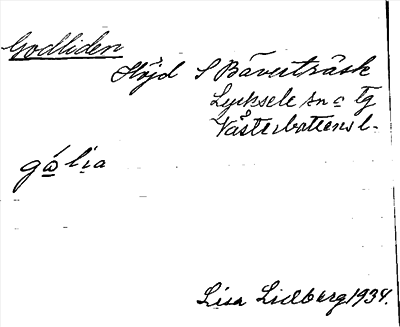 Godliden
Höjd S Bäverträsk
Lycksele sn o tg
Västerbottens l.
gólia
Lisa Lidberg 1934.